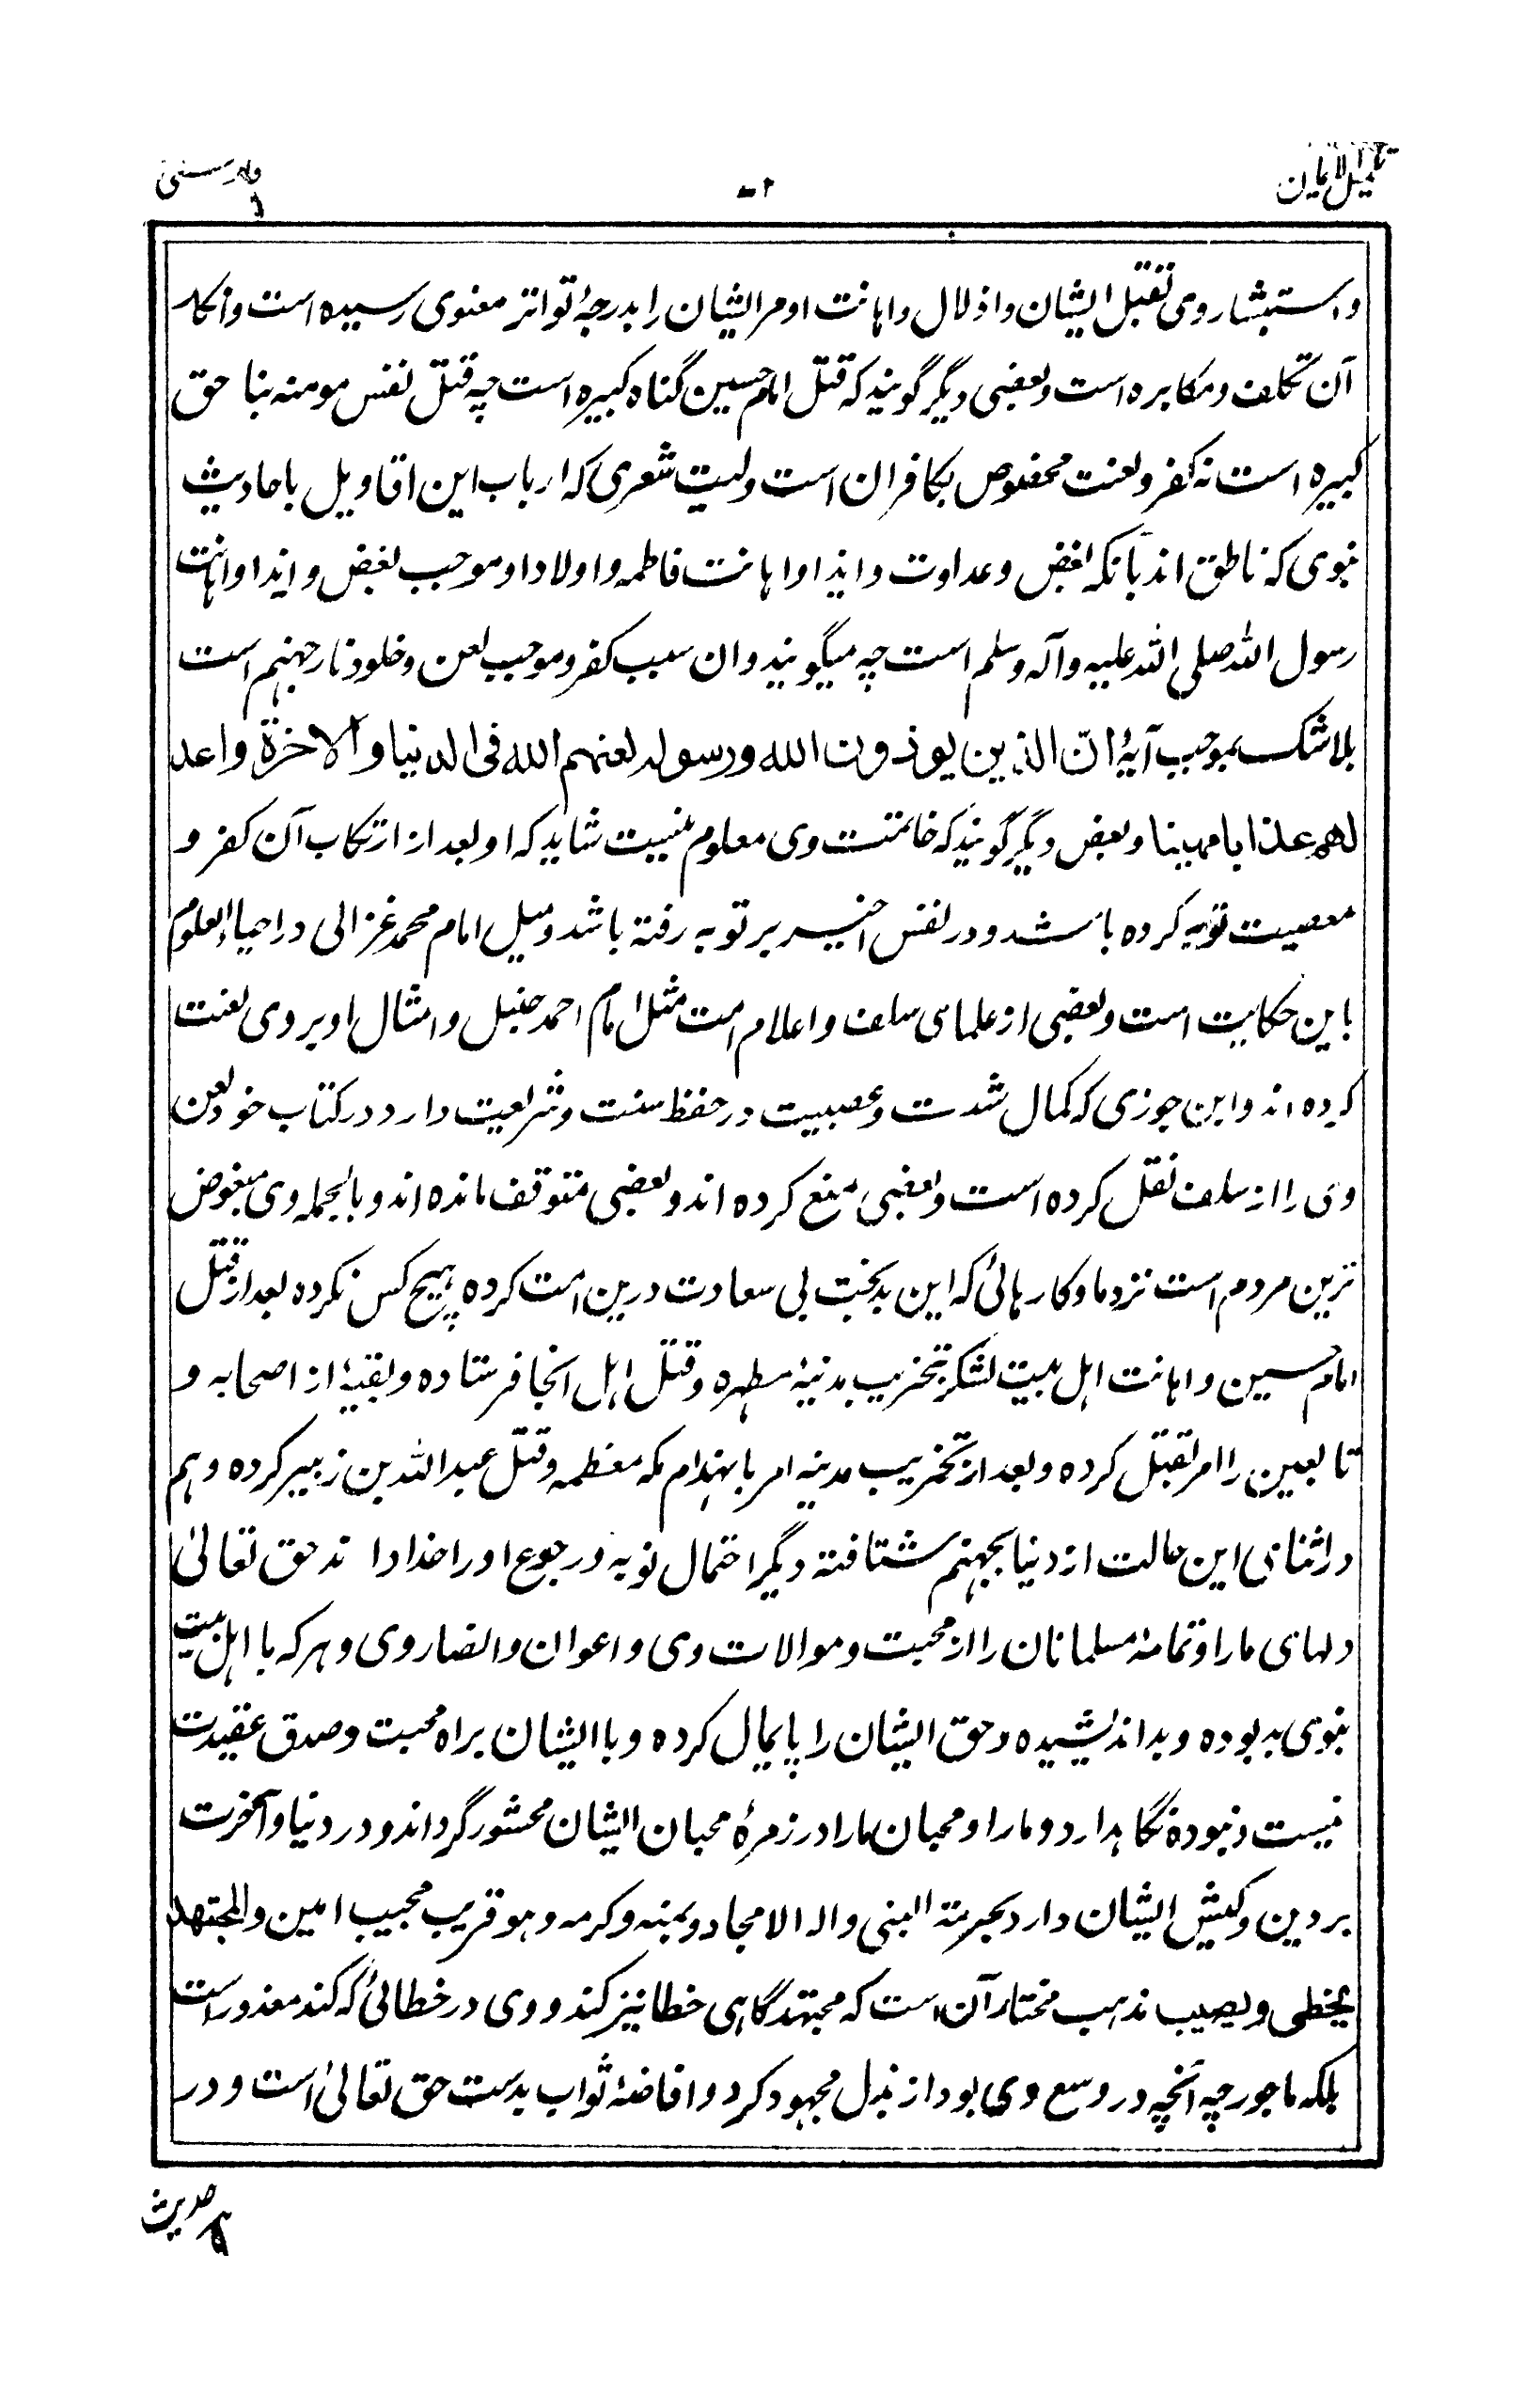 تکمیل الایمان
فارسی
واستبشار وی بقتل ایشان و اذلال و اهانت او مر ایشان را بدرجهٔ تواتر معنوی رسیده است و انکار
آن تکلف و مکابره است و بعضی دیگر گویند که قتل امام حسین گناه کبیره است چه قتل نفس مومنه بنا حق
کبیره است نه کفر و لعنت مخصوص بکافران است ولیت شعری که ارباب این اقاویل با حادیث
نبوی که ناطق اند بآنکه بغض و عداوت و ایذا و اهانت فاطمه و اولاد او موجب بغض و ایذا و اهانت
رسول الله صلی الله علیه وآله وسلم است چه میگویند و ان سبب کفر و موجب لعن و خلود نار جهنم است
بلا شک بموجب آیهٔ انّ الذین یوذون الله ورسوله لعنهم الله فی الدنیا والاخرة واعد
لهم عذابا مهینا و بعض دیگر گویند که خاتمت وی معلوم نیست شاید که او بعد از ارتکاب آن کفر و
معصیت توبه کرده باشد و در نفس اخیر بر توبه رفته باشد و میل امام محمد غزالی در احیاء العلوم
باین حکایت است و بعضی از علمای سلف و اعلام امت مثل امام احمد حنبل و امثال او بر وی لعنت
کرده اند و ابن جوزی که کمال شدت و عصبیت در حفظ سنت و شریعت دارد در کتاب خود لعن
وی را از سلف نقل کرده است و بعضی منع کرده اند و بعضی متوقف مانده اند و بالجمله وی مبغوض
ترین مردم است نزد ما و کارهائی که این بدبخت بی سعادت درین امت کرده هیچ کس نکرده بعد از قتل
امام حسین و اهانت اهل بیت لشکر بتخریب مدینهٔ مطهره و قتل اهل انجا فرستاده و بقیهٔ از اصحابه و
تابعین را امر بقتل کرده و بعد از تخریب مدینه امر بانهدام مکه معظمه و قتل عبد الله بن زبیر کرده و هم
در اثنای این حالت از دنیا بجهنم شتافته دیگر احتمال توبه و رجوع او را خدا داند حق تعالیٰ
دلهای ما را و تمامهٔ مسلمانان را از محبت و موالات وی و اعوان و انصار وی و هر که با اهل بیت
نبوی بد بوده و بد اندیشیده و حق ایشان را پایمال کرده و با ایشان براه محبت و صدق عقیدت
نیست و نبوده نگاهدارد و ما را و محبان ما را در زمرهٔ محبان ایشان محشور گرداند و در دنیا و آخرت
بر دین و کیش ایشان دارد بحرمة النبی واله الامجاد وبمنه وکرمه وهو قریب مجیب امین والمجتهد
یخطی ویصیب مذهب مختار آن است که مجتهد گاهی خطا نیز کند و وی در خطائی که کند معذور است
بلکه ماجور چه آنچه در وسع وی بود از بذل مجهود کرد و افاضهٔ ثواب بدست حق تعالیٰ است و در
حدیث